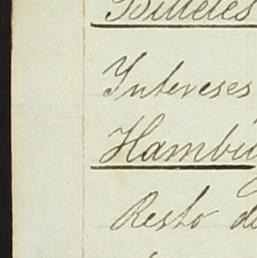 Billetes
Intereses
Hambu
Resto de